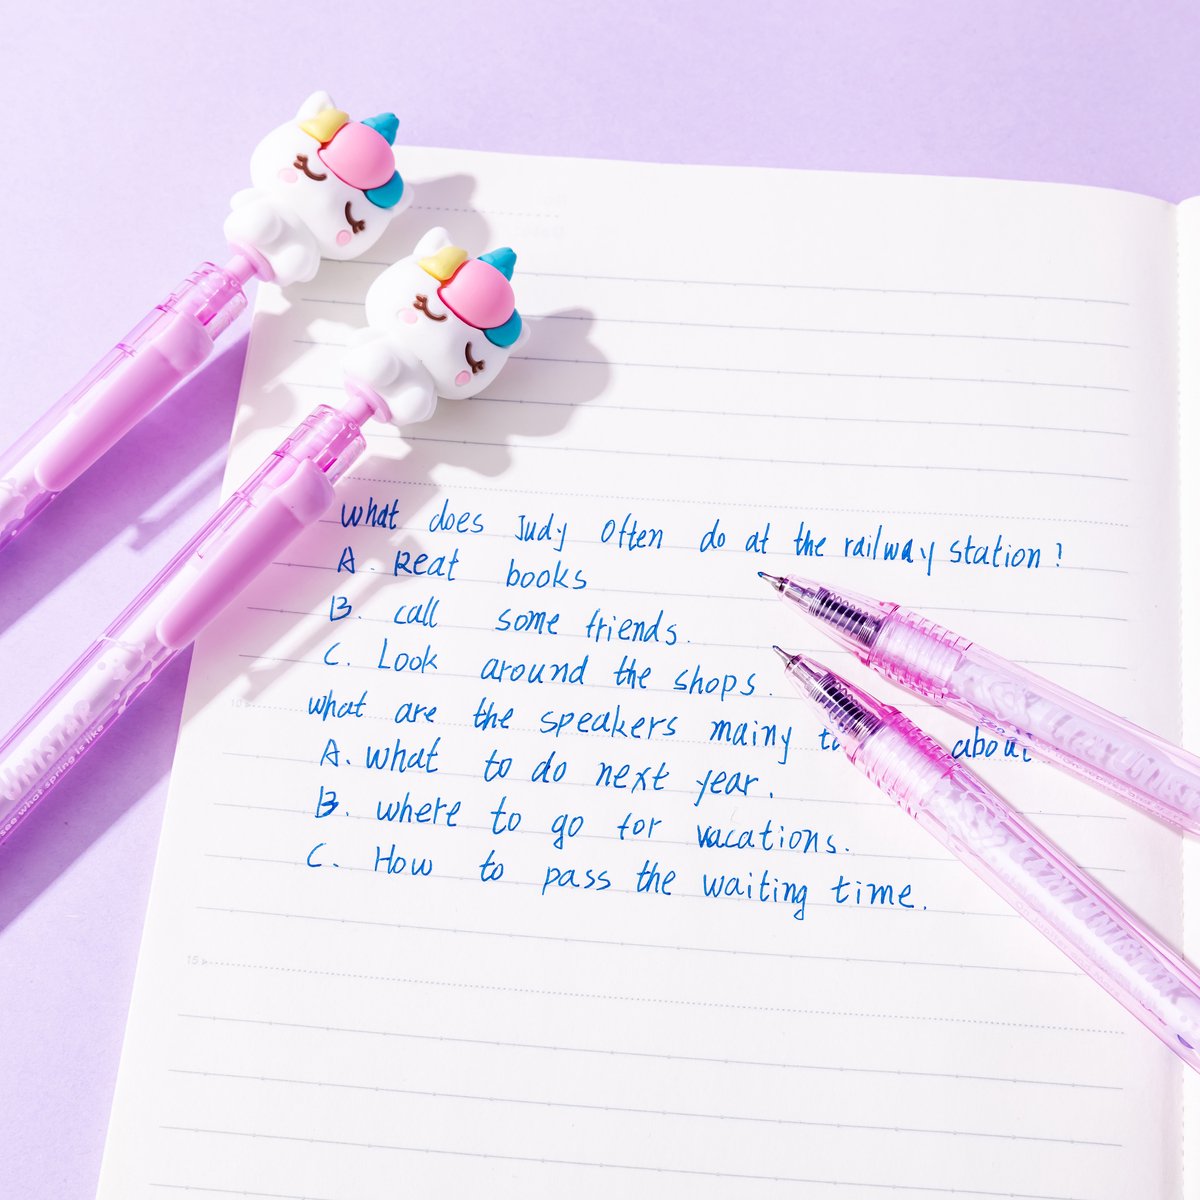 What does Judy Often do at the railway station?
A. Reat books
B. call some friends.
C. Look around the shops.
what are the speakers mainy about
A. What to do next year.
B. where to go for vacations.
C. How to pass the waiting time.
10
15
see what spring is like